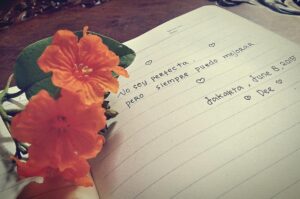 No soy perfecta,
pero siempre puedo mejorar
Jakarta, June 8, 2015
Dee